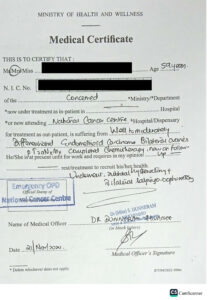 MINISTRY OF HEALTH AND WELLNESS
Medical Certificate
THIS IS TO CERTIFY THAT :
Mr/Mrs/Miss Age 59 years
N. I. C. No.
Concerned *Ministry/Department
*now under treatment as in-patient in Hospital
*or now attending National Cancer Centre *Hospital/Dispensary
for treatment as out-patient, is suffering from Well to moderately
differentiated Endometrioid Carcinoma Bilateral ovaries
Completed Chemotherapy, now on follow-up
He/She is/at present unfit for work and requires in my opinion
rest/treatment to recruit his/her health
Underwent subtotal hysterectomy &
bilateral salpingo-oophorectomy
Emergency OPD
Official Stamp of
National Cancer Centre
Name of Medical Officer DR
(in block letters)
Date Nov
Medical Officer's Signature
* Delete whichever does not apply
CamScanner